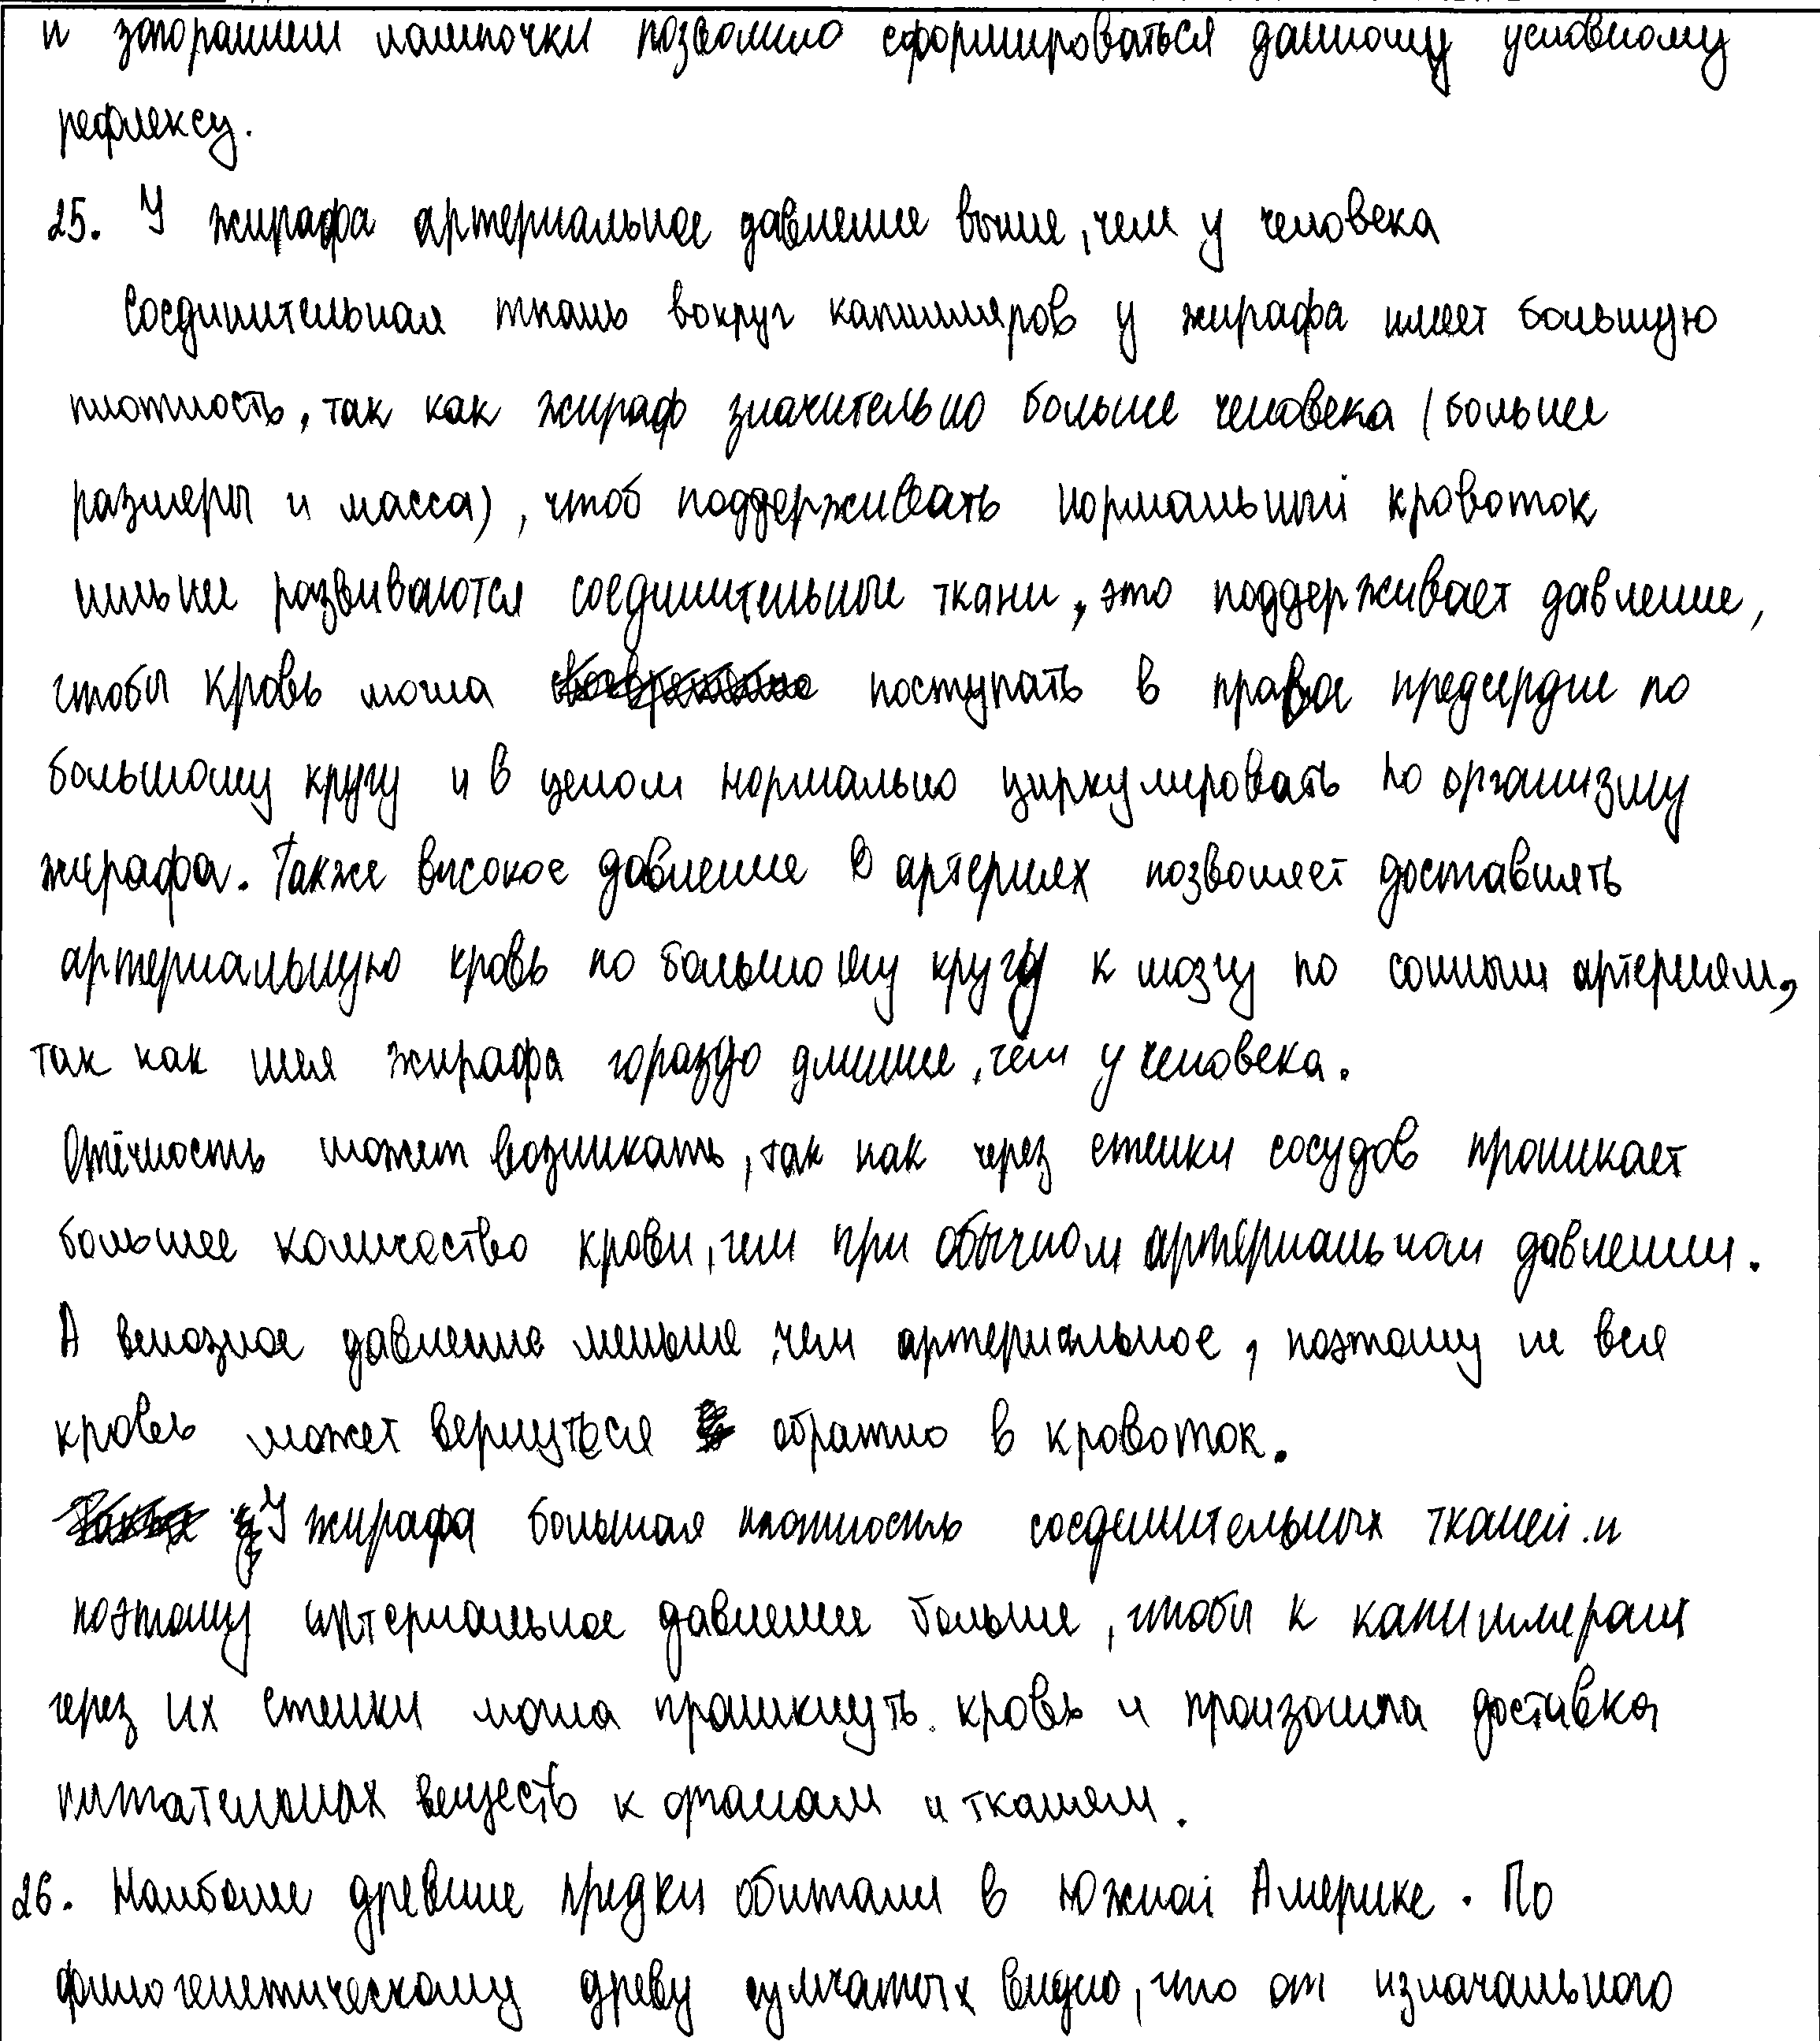 и загоранием лампочки позволило сформироваться данному условному
рефлексу.
25. У жирафа артериальное давление выше, чем у человека
Соединительная ткань вокруг капилляров у жирафа имеет большую
плотность, так как жираф значительно больше человека (больше
размеры и масса), чтоб поддерживать нормальный кровоток
сильнее развиваются соединительные ткани, это поддерживает давление,
чтобы кровь могла поступать в правое предсердие по
большому кругу и в целом нормально циркулировать по организму
жирафа. Также высокое давление в артериях позволяет доставлять
артериальную кровь по большому кругу к мозгу по сонным артериям,
так как шея жирафа гораздо длиннее, чем у человека.
Отёчность может возникать, так как через стенки сосудов проникает
большее количество крови, чем при обычном артериальном давлении.
А венозное давление меньше, чем артериальное, поэтому не вся
кровь может вернуться обратно в кровоток.
У жирафа большая плотность соединительных тканей и
поэтому артериальное давление больше, чтобы к капиллярам
через их стенки могла проникнуть кровь и произошла доставка
питательных веществ к органам и тканям.
26. Наиболее древние предки обитали в Южной Америке. По
филогенетическому древу сумчатых видно, что от изначального